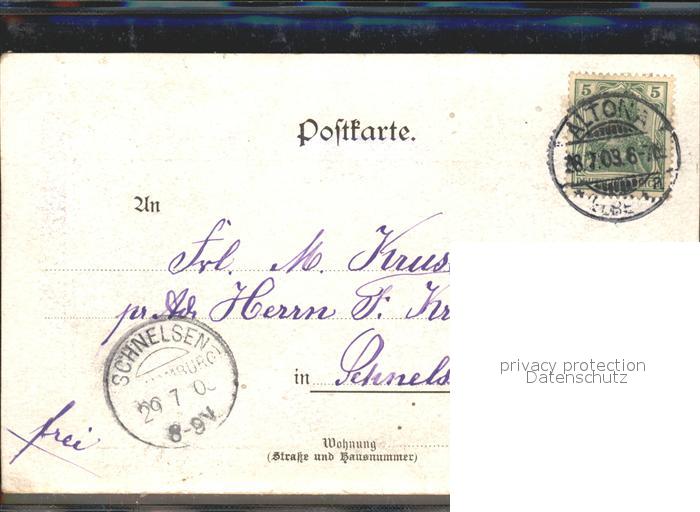 5 5
ALTONA
28.7.03.6-7N
* (ELBE) *
Postkarte.
An
Frl. M. Krus
pr. Adr. Herrn F. Kr
SCHNELSEN
(HAMBURG)
29 7 0
8-9V
in Schnels
frei
Wohnung
(Straße und Hausnummer)
privacy protection
Datenschutz